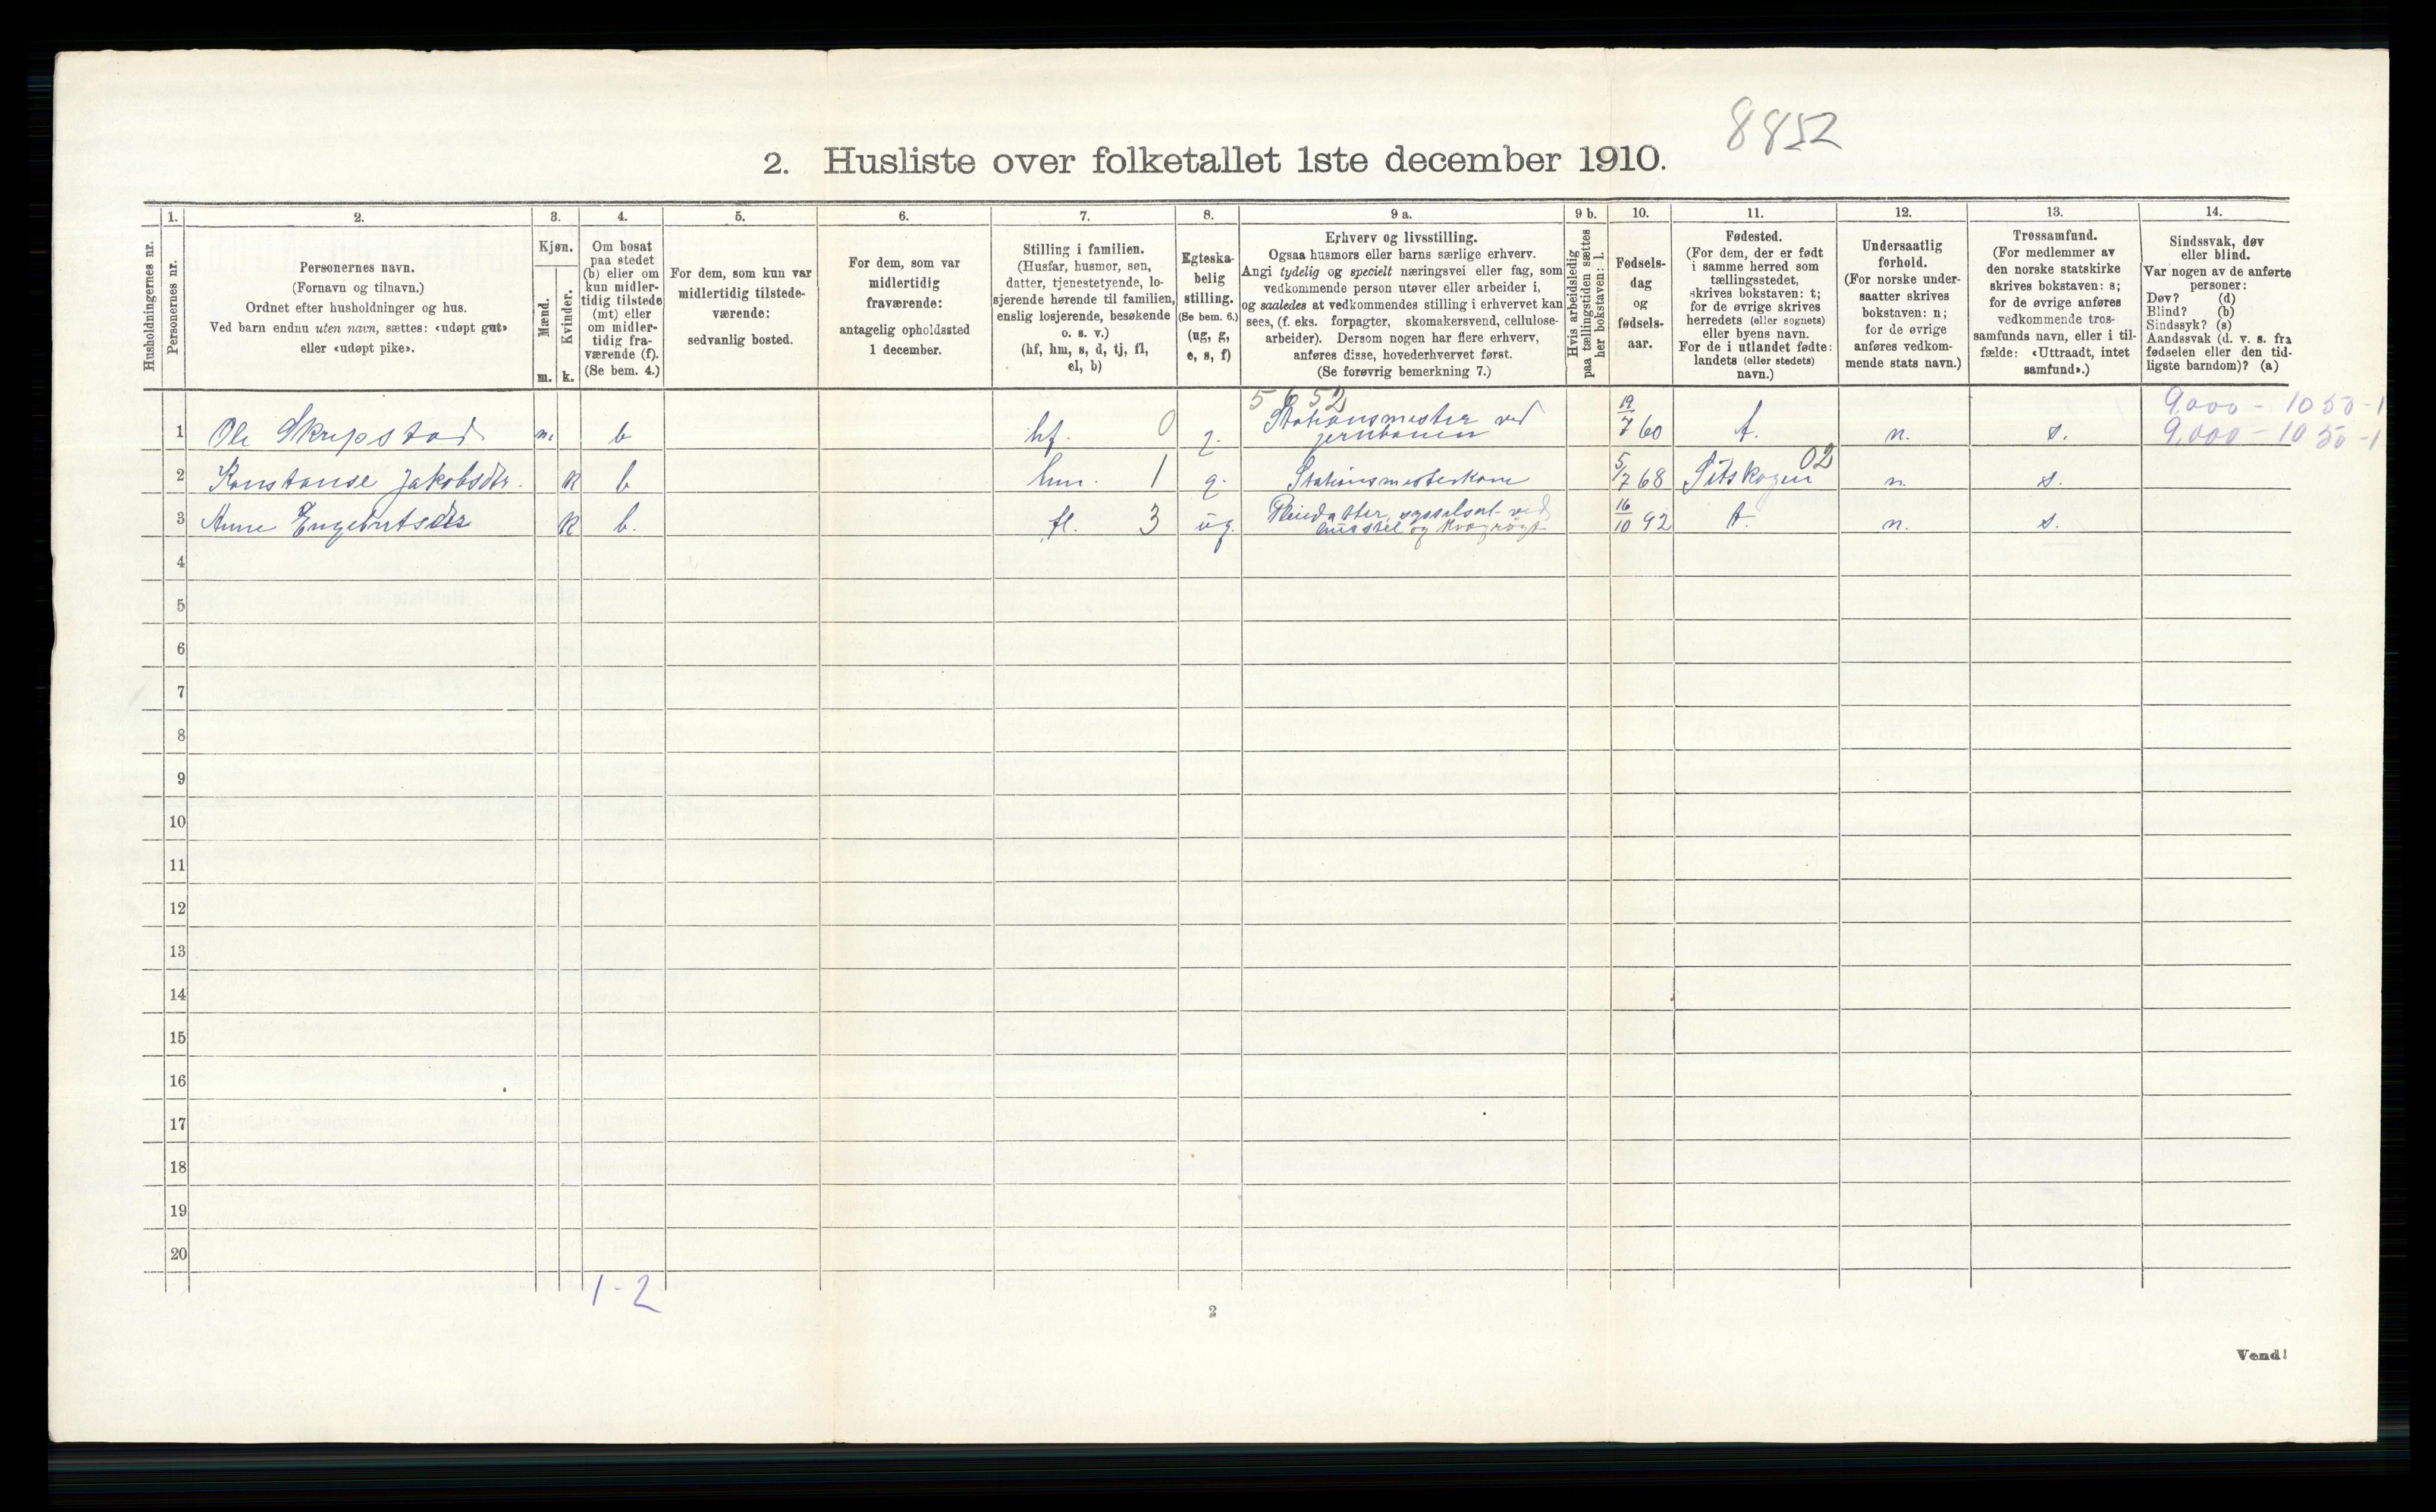 8852
2. Husliste over folketallet 1ste december 1910.
Husholdningernes nr.
1.
Personernes nr.
2.
Personernes navn.
(Fornavn og tilnavn.)
Ordnet efter husholdninger og hus.
Ved barn endnu uten navn, sættes: «udøpt gut»
eller «udøpt pike».
3.
Kjøn.
Mænd.
Kvinder.
m. k.
4.
Om bosat
paa stedet
(b) eller om
kun midler-
tidig tilstede
(mt) eller
om midler-
tidig fra-
værende (f).
(Se bem. 4.)
5.
For dem, som kun var
midlertidig tilstede-
værende:
sedvanlig bosted.
6.
For dem, som var
midlertidig
fraværende:
antagelig opholdssted
1 december.
7.
Stilling i familien.
(Husfar, husmor, søn,
datter, tjenestetyende, lo-
sjerende hørende til familien,
enslig losjerende, besøkende
o. s. v.)
(hf, hm, s, d, tj, fl,
el, b)
8.
Egteska-
belig
stilling.
(Se bem. 6.)
(ug, g,
e, s, f)
9 a.
Erhverv og livsstilling.
Ogsaa husmors eller barns særlige erhverv.
Angi tydelig og specielt næringsvei eller fag, som
vedkommende person utøver eller arbeider i,
og saaledes at vedkommendes stilling i erhvervet kan
sees, (f. eks. forpagter, skomakersvend, cellulose-
arbeider). Dersom nogen har flere erhverv,
anføres disse, hovederhvervet først.
(Se forøvrig bemerkning 7.)
9 b.
Hvis arbeidsledig
paa tællingstiden sættes
her bokstaven: l.
10.
Fødsels-
dag
og
fødsels-
aar.
11.
Fødested.
(For dem, der er født
i samme herred som
tællingsstedet,
skrives bokstaven: t;
for de øvrige skrives
herredets (eller sognets)
eller byens navn.
For de i utlandet fødte:
landets (eller stedets)
navn.)
12.
Undersaatlig
forhold.
(For norske under-
saatter skrives
bokstaven: n;
for de øvrige
anføres vedkom-
mende stats navn.)
13.
Trossamfund.
(For medlemmer av
den norske statskirke
skrives bokstaven: s;
for de øvrige anføres
vedkommende tros-
samfunds navn, eller i til-
fælde: «Uttraadt, intet
samfund».)
14.
Sindssvak, døv
eller blind.
Var nogen av de anførte
personer:
Døv? (d)
Blind? (b)
Sindssyk? (s)
Aandssvak (d. v. s. fra
fødselen eller den tid-
ligste barndom)? (a)
5652
9,000 - 1050-1
1 Ole Skrepstad m. b hf. 0 g. Stationsmester ved jernbanen 19/7 60 t. n. s. 9,000 - 1050-1
2 Konstanse Jakobsdtr. k b hm. 1 g. Stationsmesterkone 5/7 68 Sitskogen 02 n. s.
3 Anne Engebretsdtr k b. fl. 3 ug. Pleiedatter, sysselsat ved husstel og kvægrøgt 16/10 92 t. n. s.
4
5
6
7
8
9
10
11
12
13
14
15
16
17
18
19
20
1-2
2
Vend!